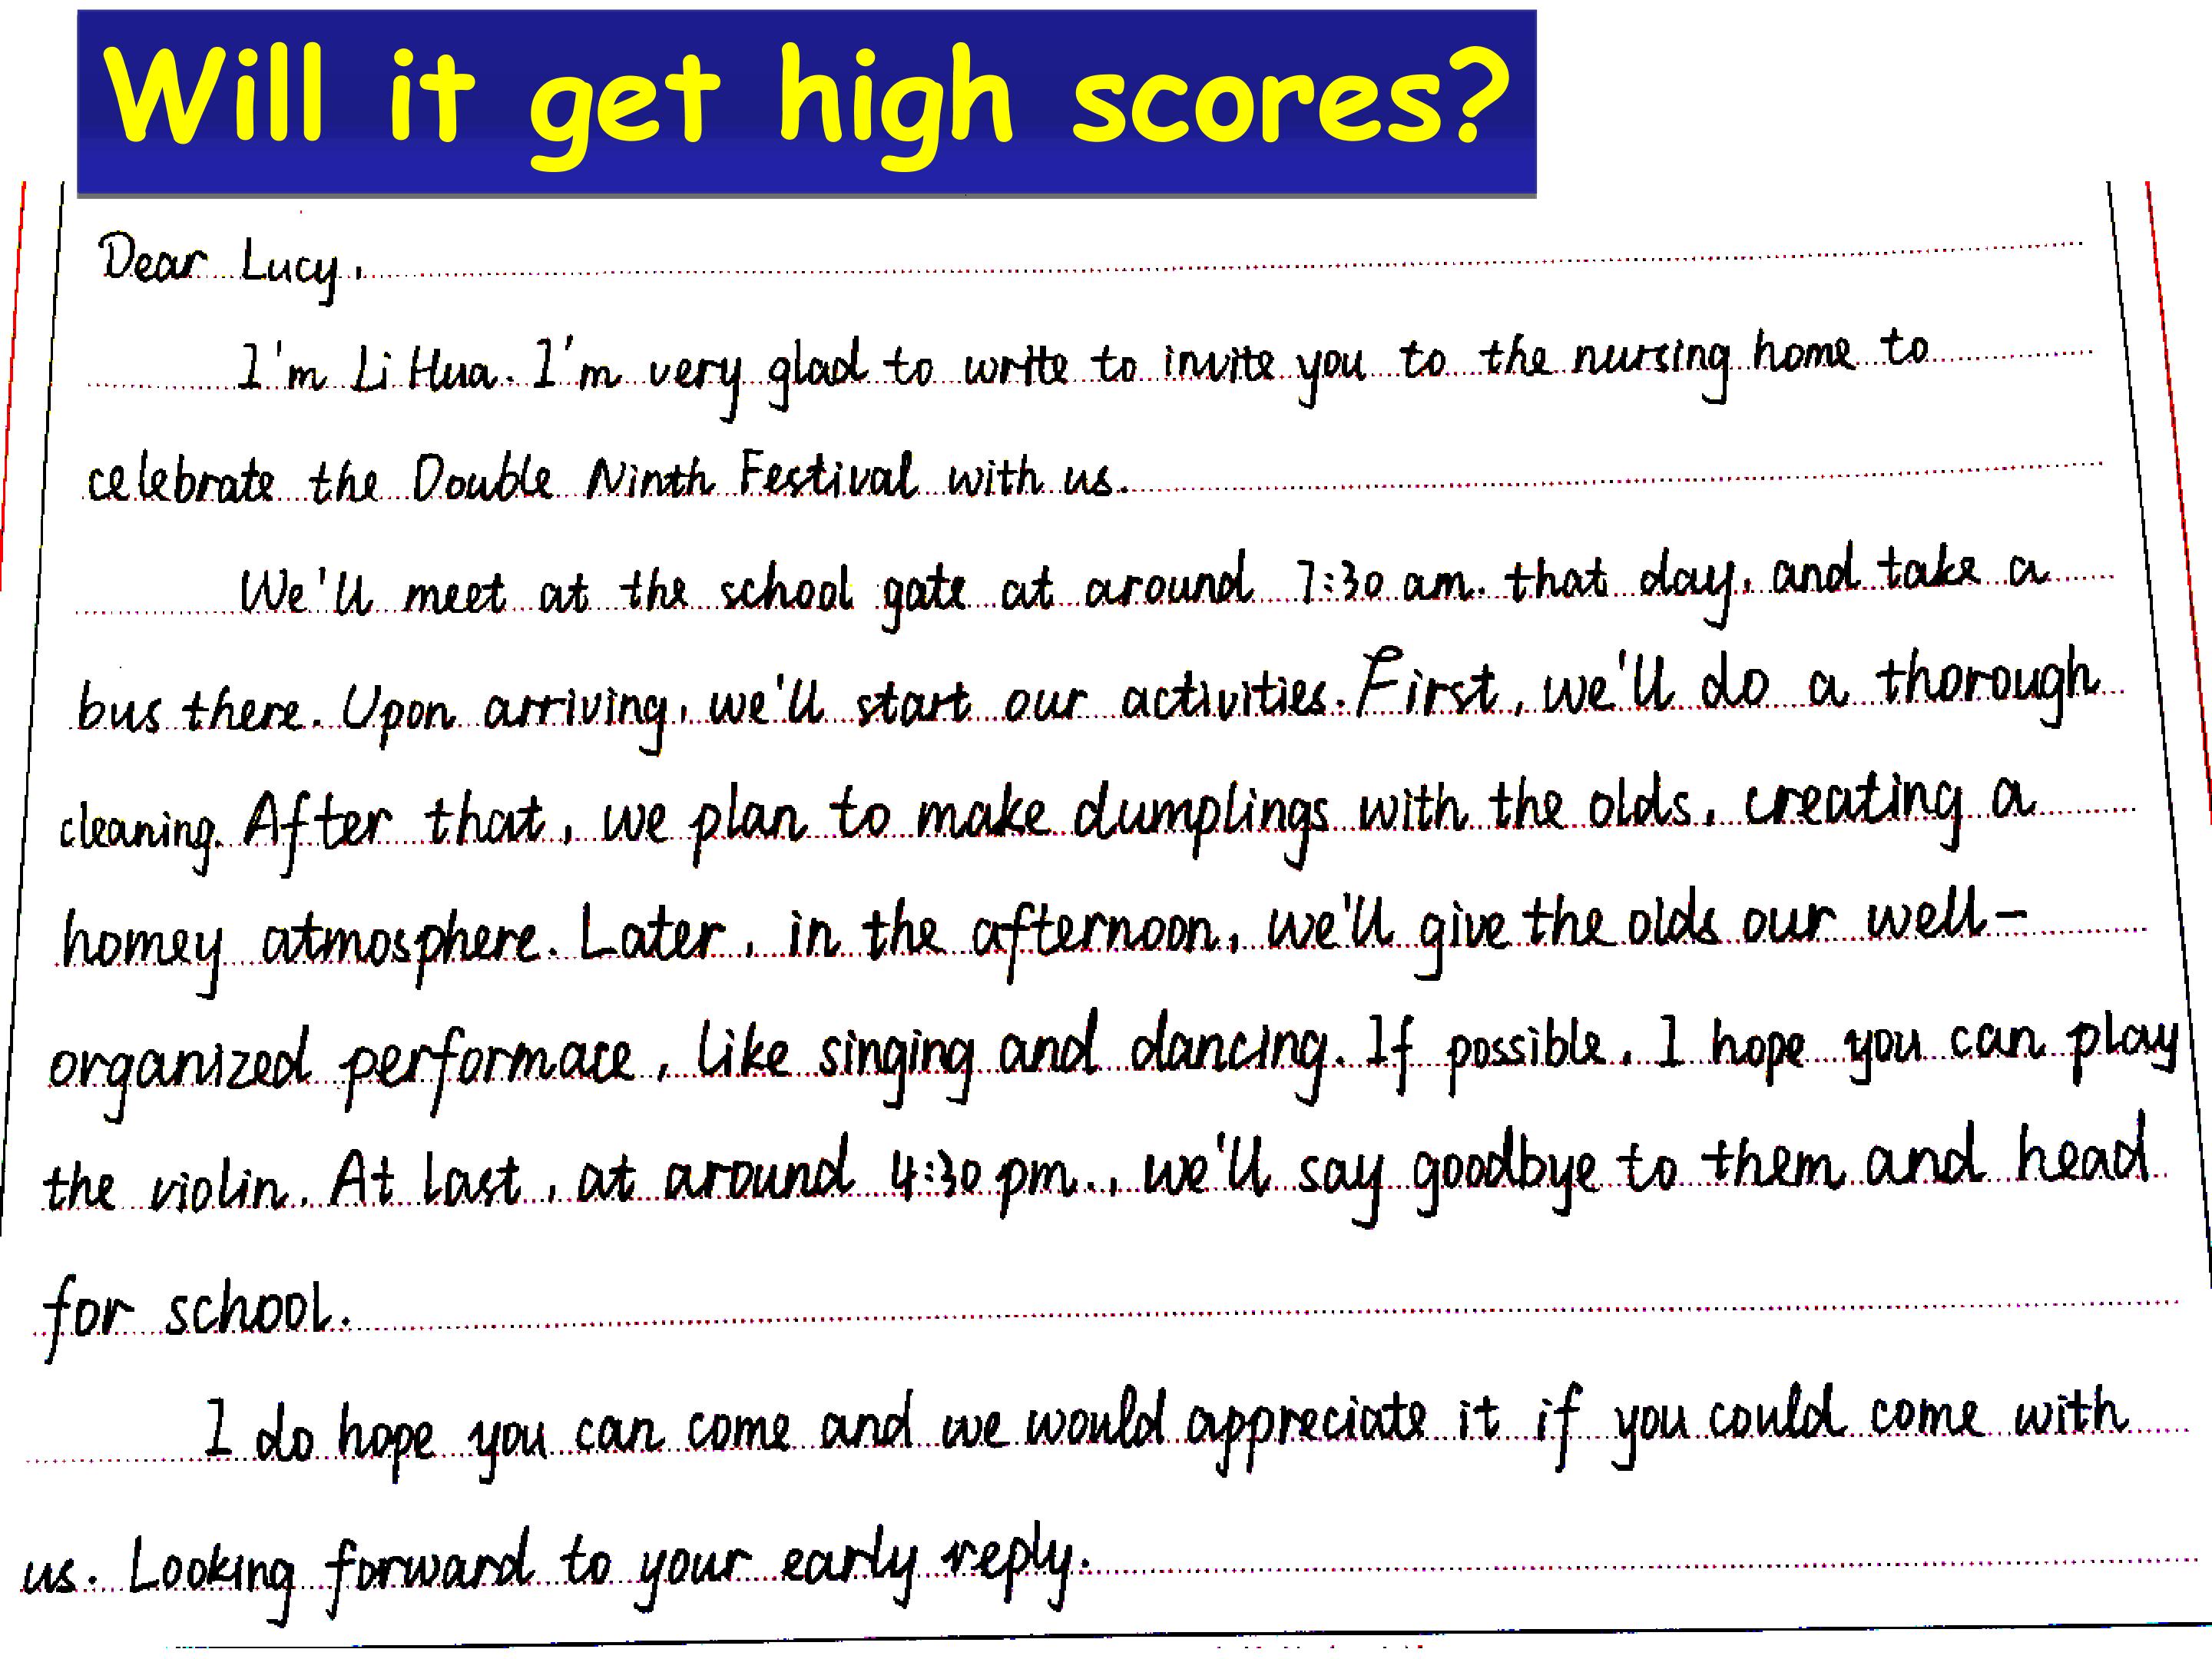 Will it get high scores?
Dear Lucy,
I'm Li Hua. I'm very glad to write to invite you to the nursing home to
celebrate the Double Ninth Festival with us.
We'll meet at the school gate at around 7:30 am. that day, and take a
bus there. Upon arriving, we'll start our activities. First, we'll do a thorough
cleaning. After that, we plan to make dumplings with the olds, creating a
homey atmosphere. Later, in the afternoon, we'll give the olds our well-
organized performace, like singing and dancing. If possible, I hope you can play
the violin. At last, at around 4:30 pm., we'll say goodbye to them and head
for school.
I do hope you can come and we would appreciate it if you could come with
us. Looking forward to your early reply.